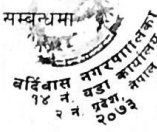 सम्बन्धमा
बर्दिवास नगरपालिका
१४ नं. वडा कार्यालय
२ नं. प्रदेश, नेपाल
२०७३